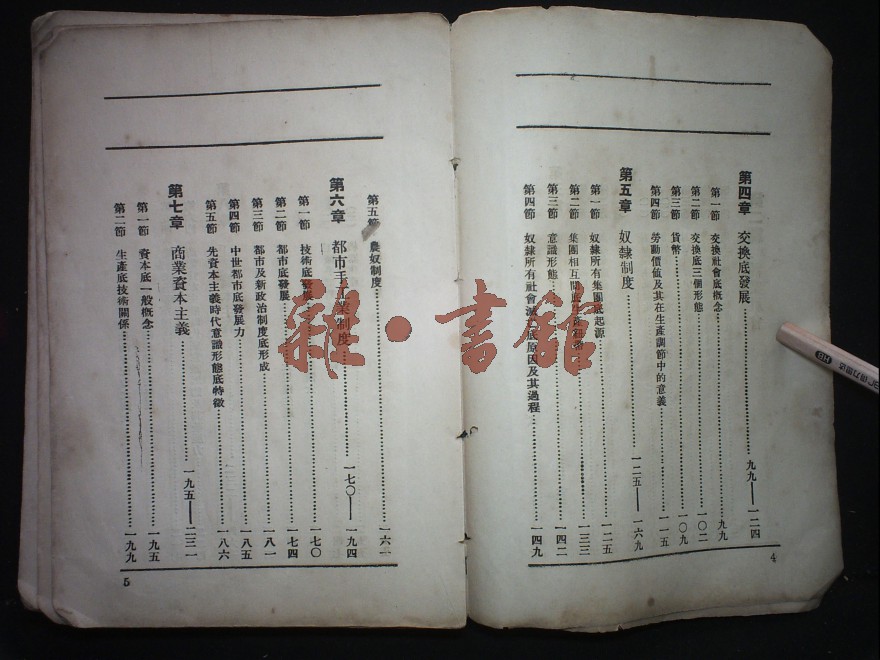 第四章 交換底發展……九九——一二四
第一節 交換社會底概念……九九
第二節 交換底三個形態……一〇二
第三節 貨幣……一〇九
第四節 勞動價值及其在生產調節中的意義……一一五
第五章 奴隸制度……一二五——一六九
第一節 奴隸所有集團底起源……一二五
第二節 集團相互間底……一三三
第三節 意識形態……一四二
第四節 奴隸所有社會滅亡底原因及其過程……一四九
4
第五節 農奴制度……一六一
第六章 都市手工業制度……一七〇——一九四
第一節 技術底發展……一七〇
第二節 都市底發展……一七四
第三節 都市及新政治制度底形成……一八一
第四節 中世都市底發展力……一八五
第五節 先資本主義時代意識形態底特徵……一八六
第七章 商業資本主義……一九五——二三一
第一節 資本底一般概念……一九五
第二節 生產底技術關係……一九九
5
雜·書館
HB